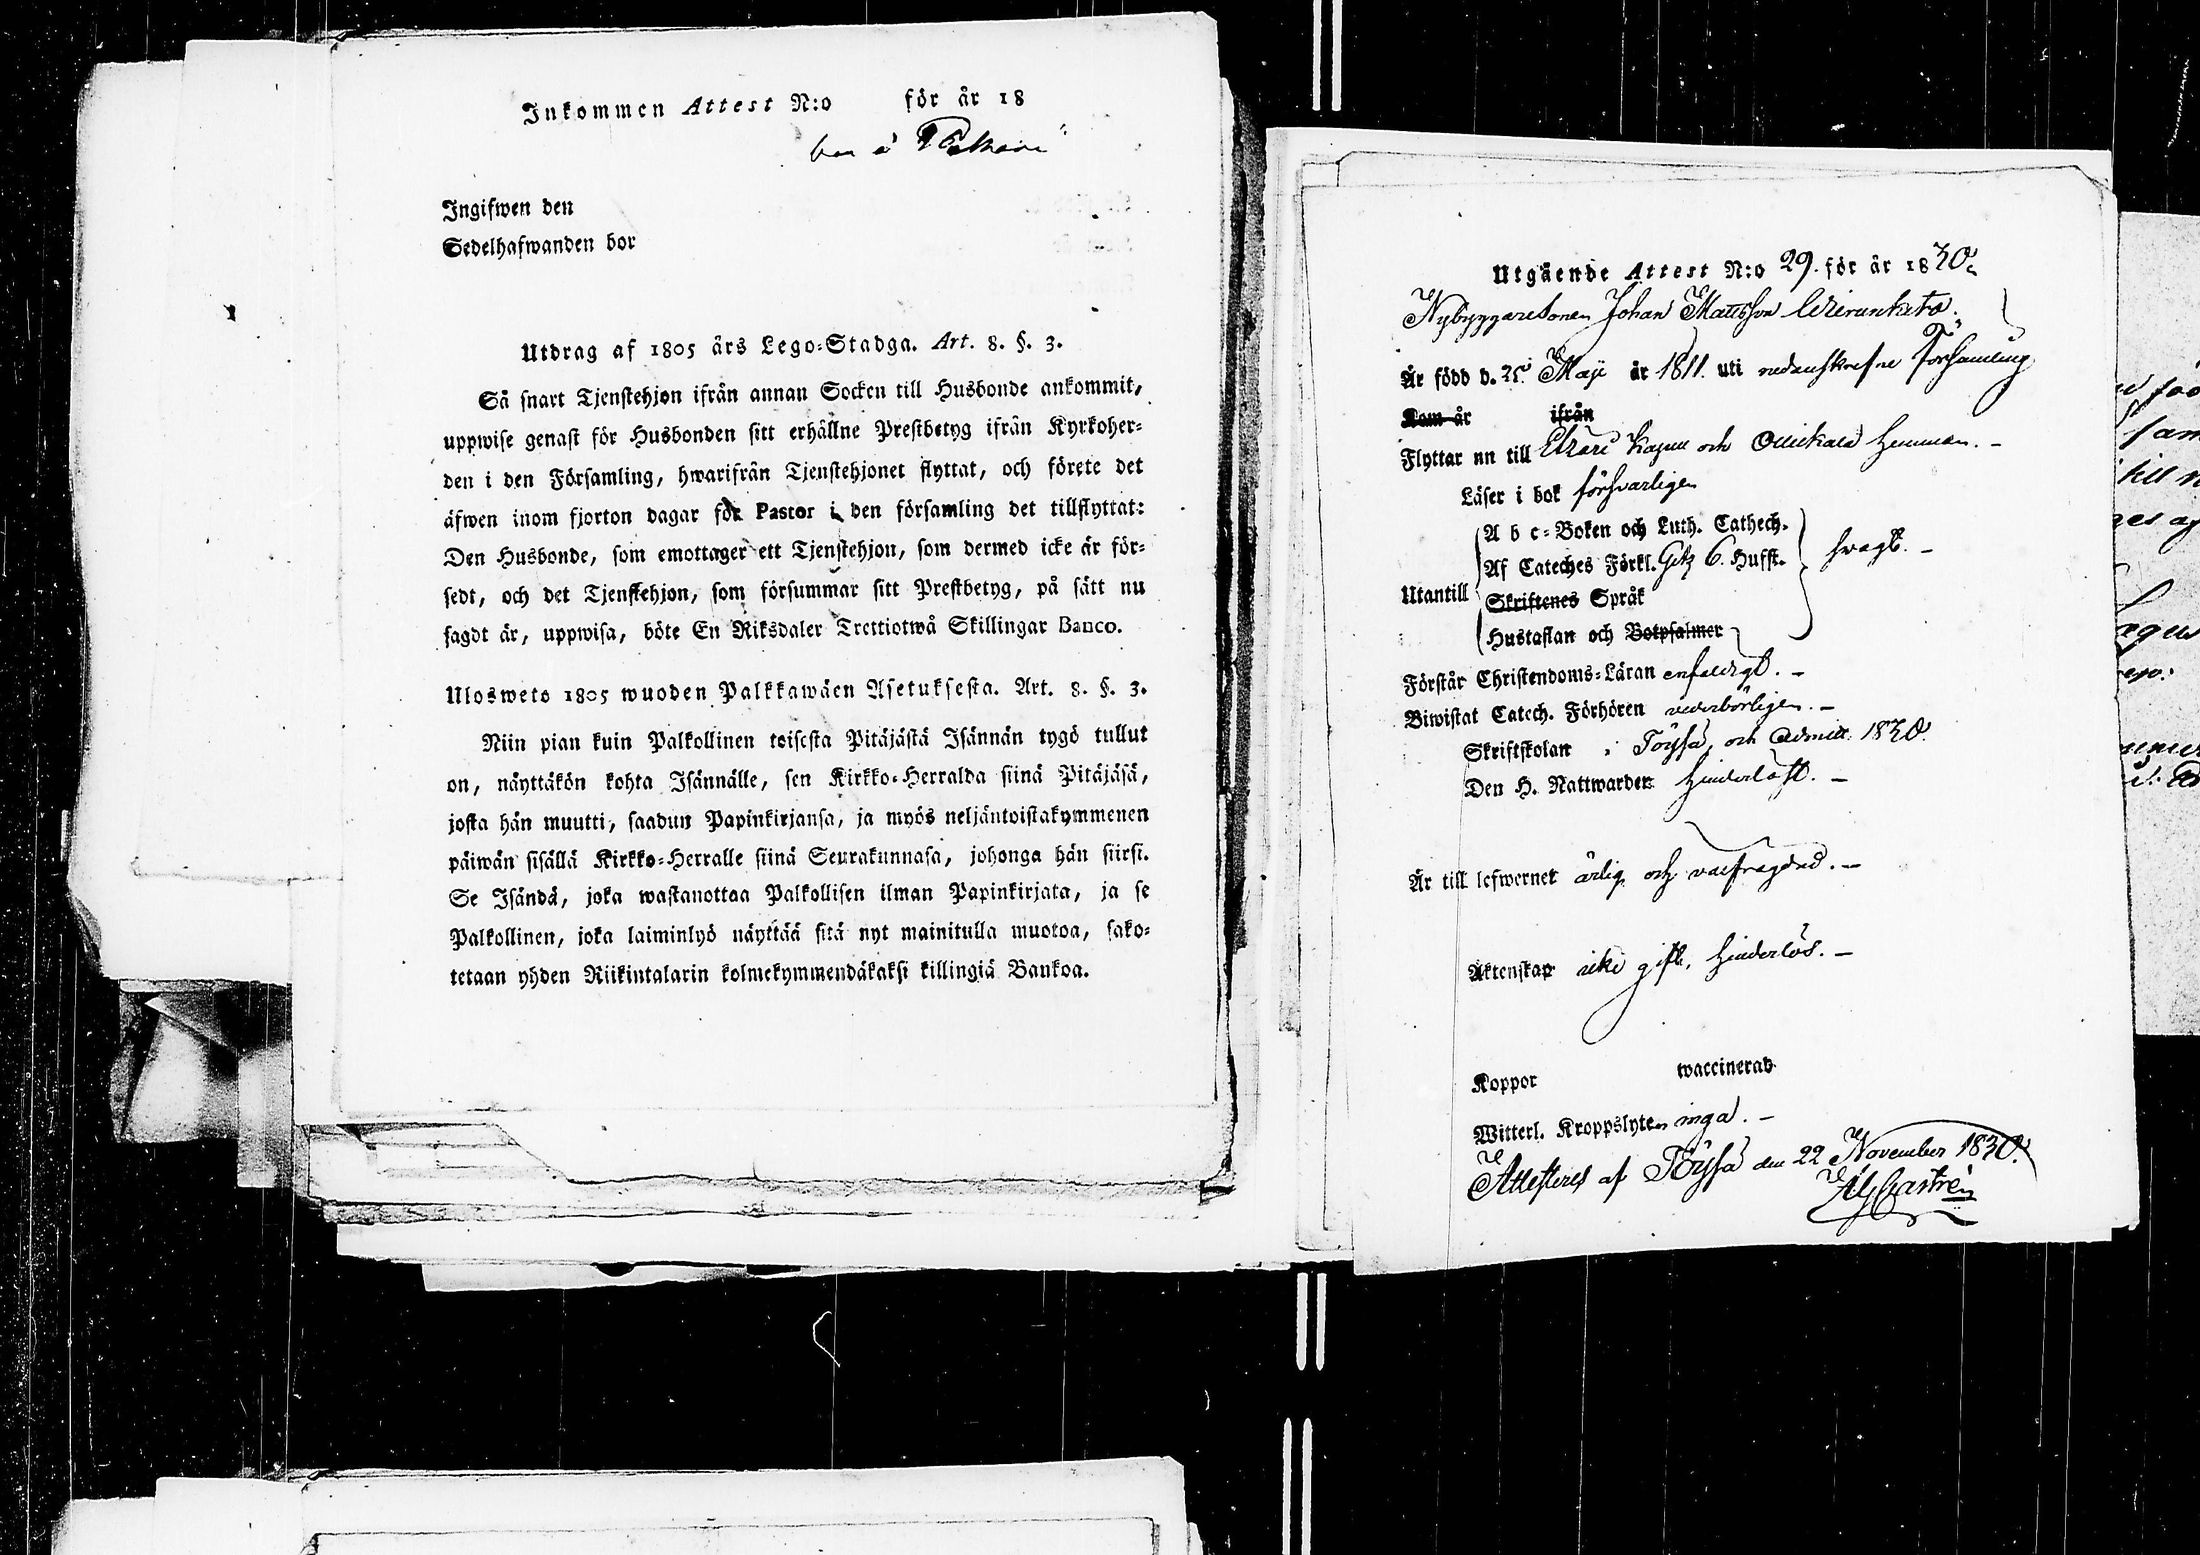 Inkommen Attest N:o för år 18
Ingifwen den
Sedelhafwanden bor
Utdrag af 1805 års Lego-Stadga. Art. 8. §. 3.
Så snart Tjenstehjon ifrån annan Socken till Husbonde ankommit,
uppwise genast för Husbonden sitt erhållne Prestbetyg ifrån Kyrkoher-
den i den Församling, hwarifrån Tjenstehjonet flyttat, och förete det
äfwen inom fjorton dagar för Pastor i den församling det tillflyttat:
Den Husbonde, som emottager ett Tjenstehjon, som dermed icke är för-
sedt, och det Tjenstehjon, som försummar sitt Prestbetyg, på sätt nu
sagdt är, uppwisa, böte En Riksdaler Trettiotwå Skillingar Banco.
Ulosweto 1805 wuoden Palkkawäen Asetuksesta. Art. 8. §. 3.
Niin pian kuin Palkollinen toisesta Pitäjästä Isännän tygö tullut
on, näyttäkön kohta Isännälle, sen Kirkko-Herralda siinä Pitäjäsä,
josta hän muutti, saadun Papinkirjansa, ja myös neljäntoistakymmenen
päiwän sisällä Kirkko-Herralle siinä Seurakunnasa, johonga hän siirsi.
Se Isändä, joka wastanottaa Palkollisen ilman Papinkirjata, ja se
Palkollinen, joka laiminlyö näyttää sitä nyt mainitulla muotoa, sako-
tetaan yhden Riikintalarin kolmekymmendäkaksi killingiä Bankoa.
Utgående Attest N:o 29. för år 1830.
Nybyggaresonen Johan Mattsson
Är född d. 25 Maji år 1811. uti nedanskrefne Församling
Kom år ifrån
Flyttar nu till Etzäri Kapell och Ollikala hemman.
Läser i bok försvarligen
A b c-Boken och Luth. Cathech.
Af Cateches Förkl. 6. Hufst. svagt.
Utantill
Skriftenes Språk
Hustaflan och Botpsalmer
Förstår Christendoms-Läran enfaldigt.
Biwistat Catech. Förhören vederbörligen.
Skriftskolan i Töysä, och admitt. 1830.
Den H. Nattwarden hinderlöst.
Är till lefwernet ärlig och välfrägdad.
Äktenskap icke gift, hinderlös.
Koppor waccinerad
Witterl. Kroppslyten inga.
Attesteras af Töysä den 22 November 1830.
Castrén